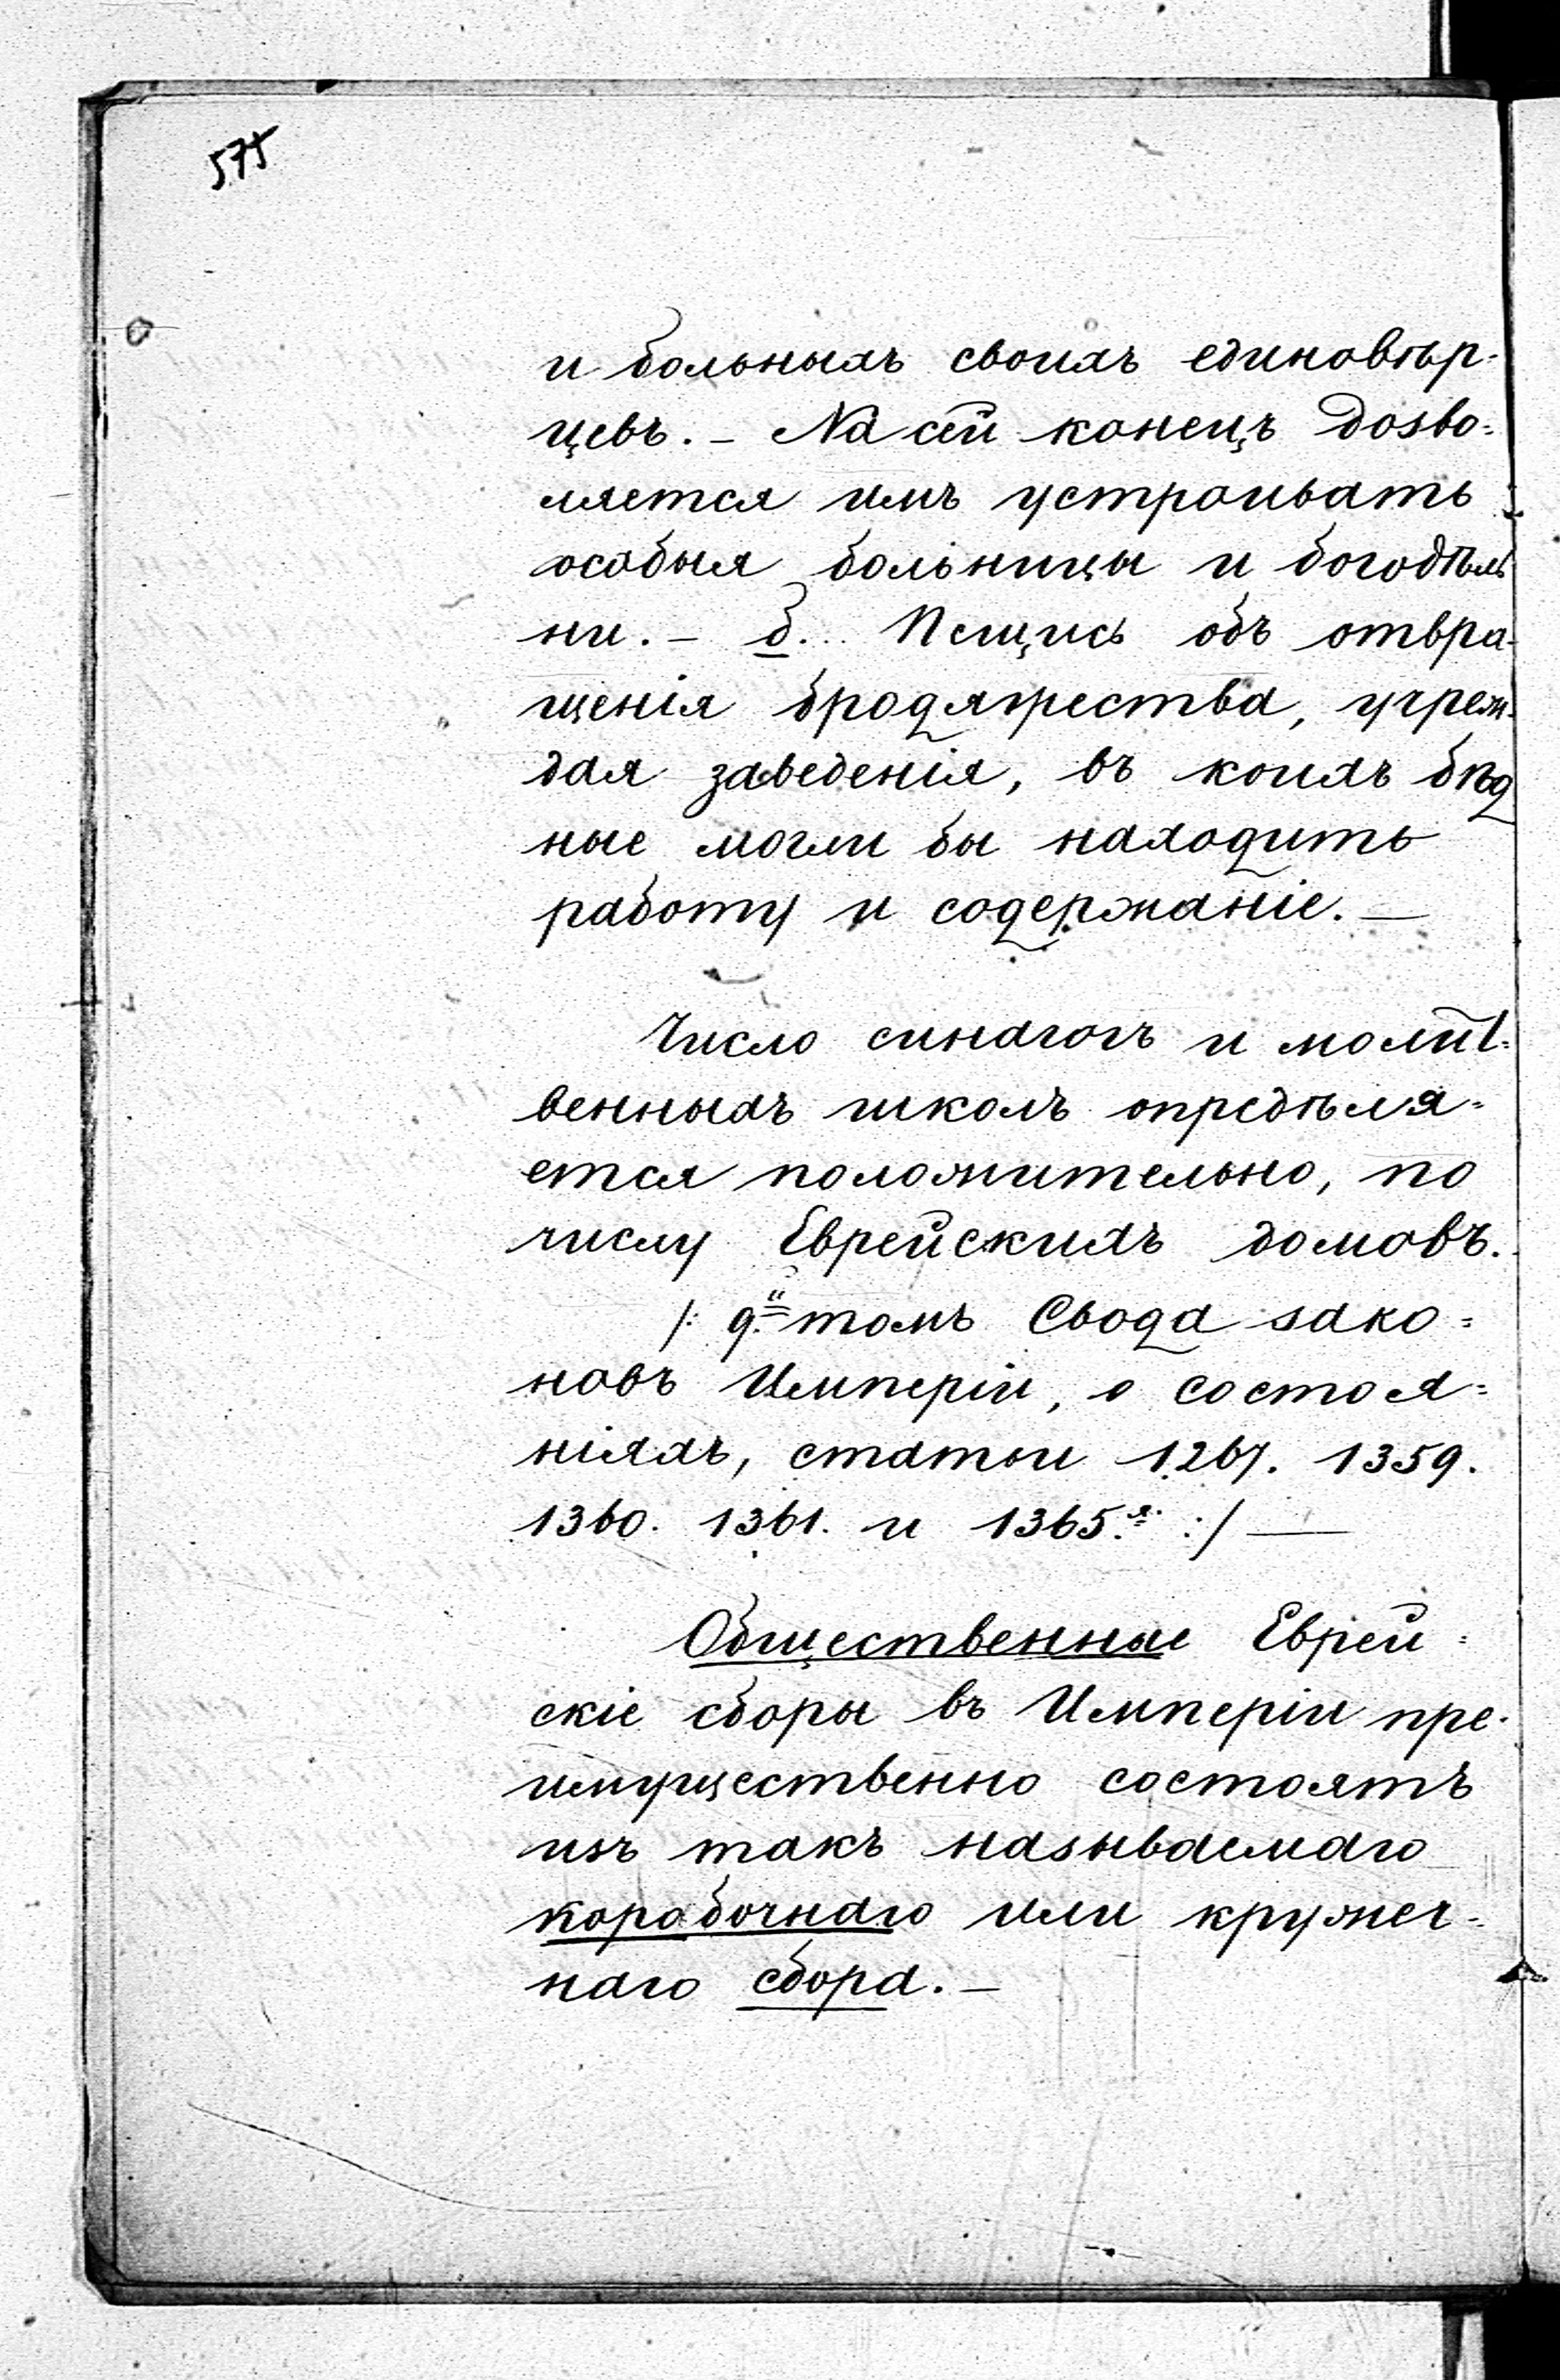 575
и больныхъ своихъ единовѣр-
цевъ. – На сей конецъ дозво-
ляется имъ устроивать
особыя больницы и богодѣль
ни. – б. Пещись объ отвра-
щенія бродяжества, учреж-
дая заведенія, въ коихъ бѣд
ные могли бы находить
работу и содержаніе. –
Число синагогъ и молит-
венныхъ школъ опредѣля-
ется положительно, по
числу Еврейскихъ домовъ.
/: 9.й томъ Свода зако-
новъ Имперіи, о состоя-
ніяхъ, статьи 1267. 1359.
1360. 1361. и 1365.я :/ –
Общественные Еврей-
скіе сборы въ Имперіи пре-
имущественно состоятъ
изъ такъ называемаго
коробочнаго или кружеч-
наго сбора. –